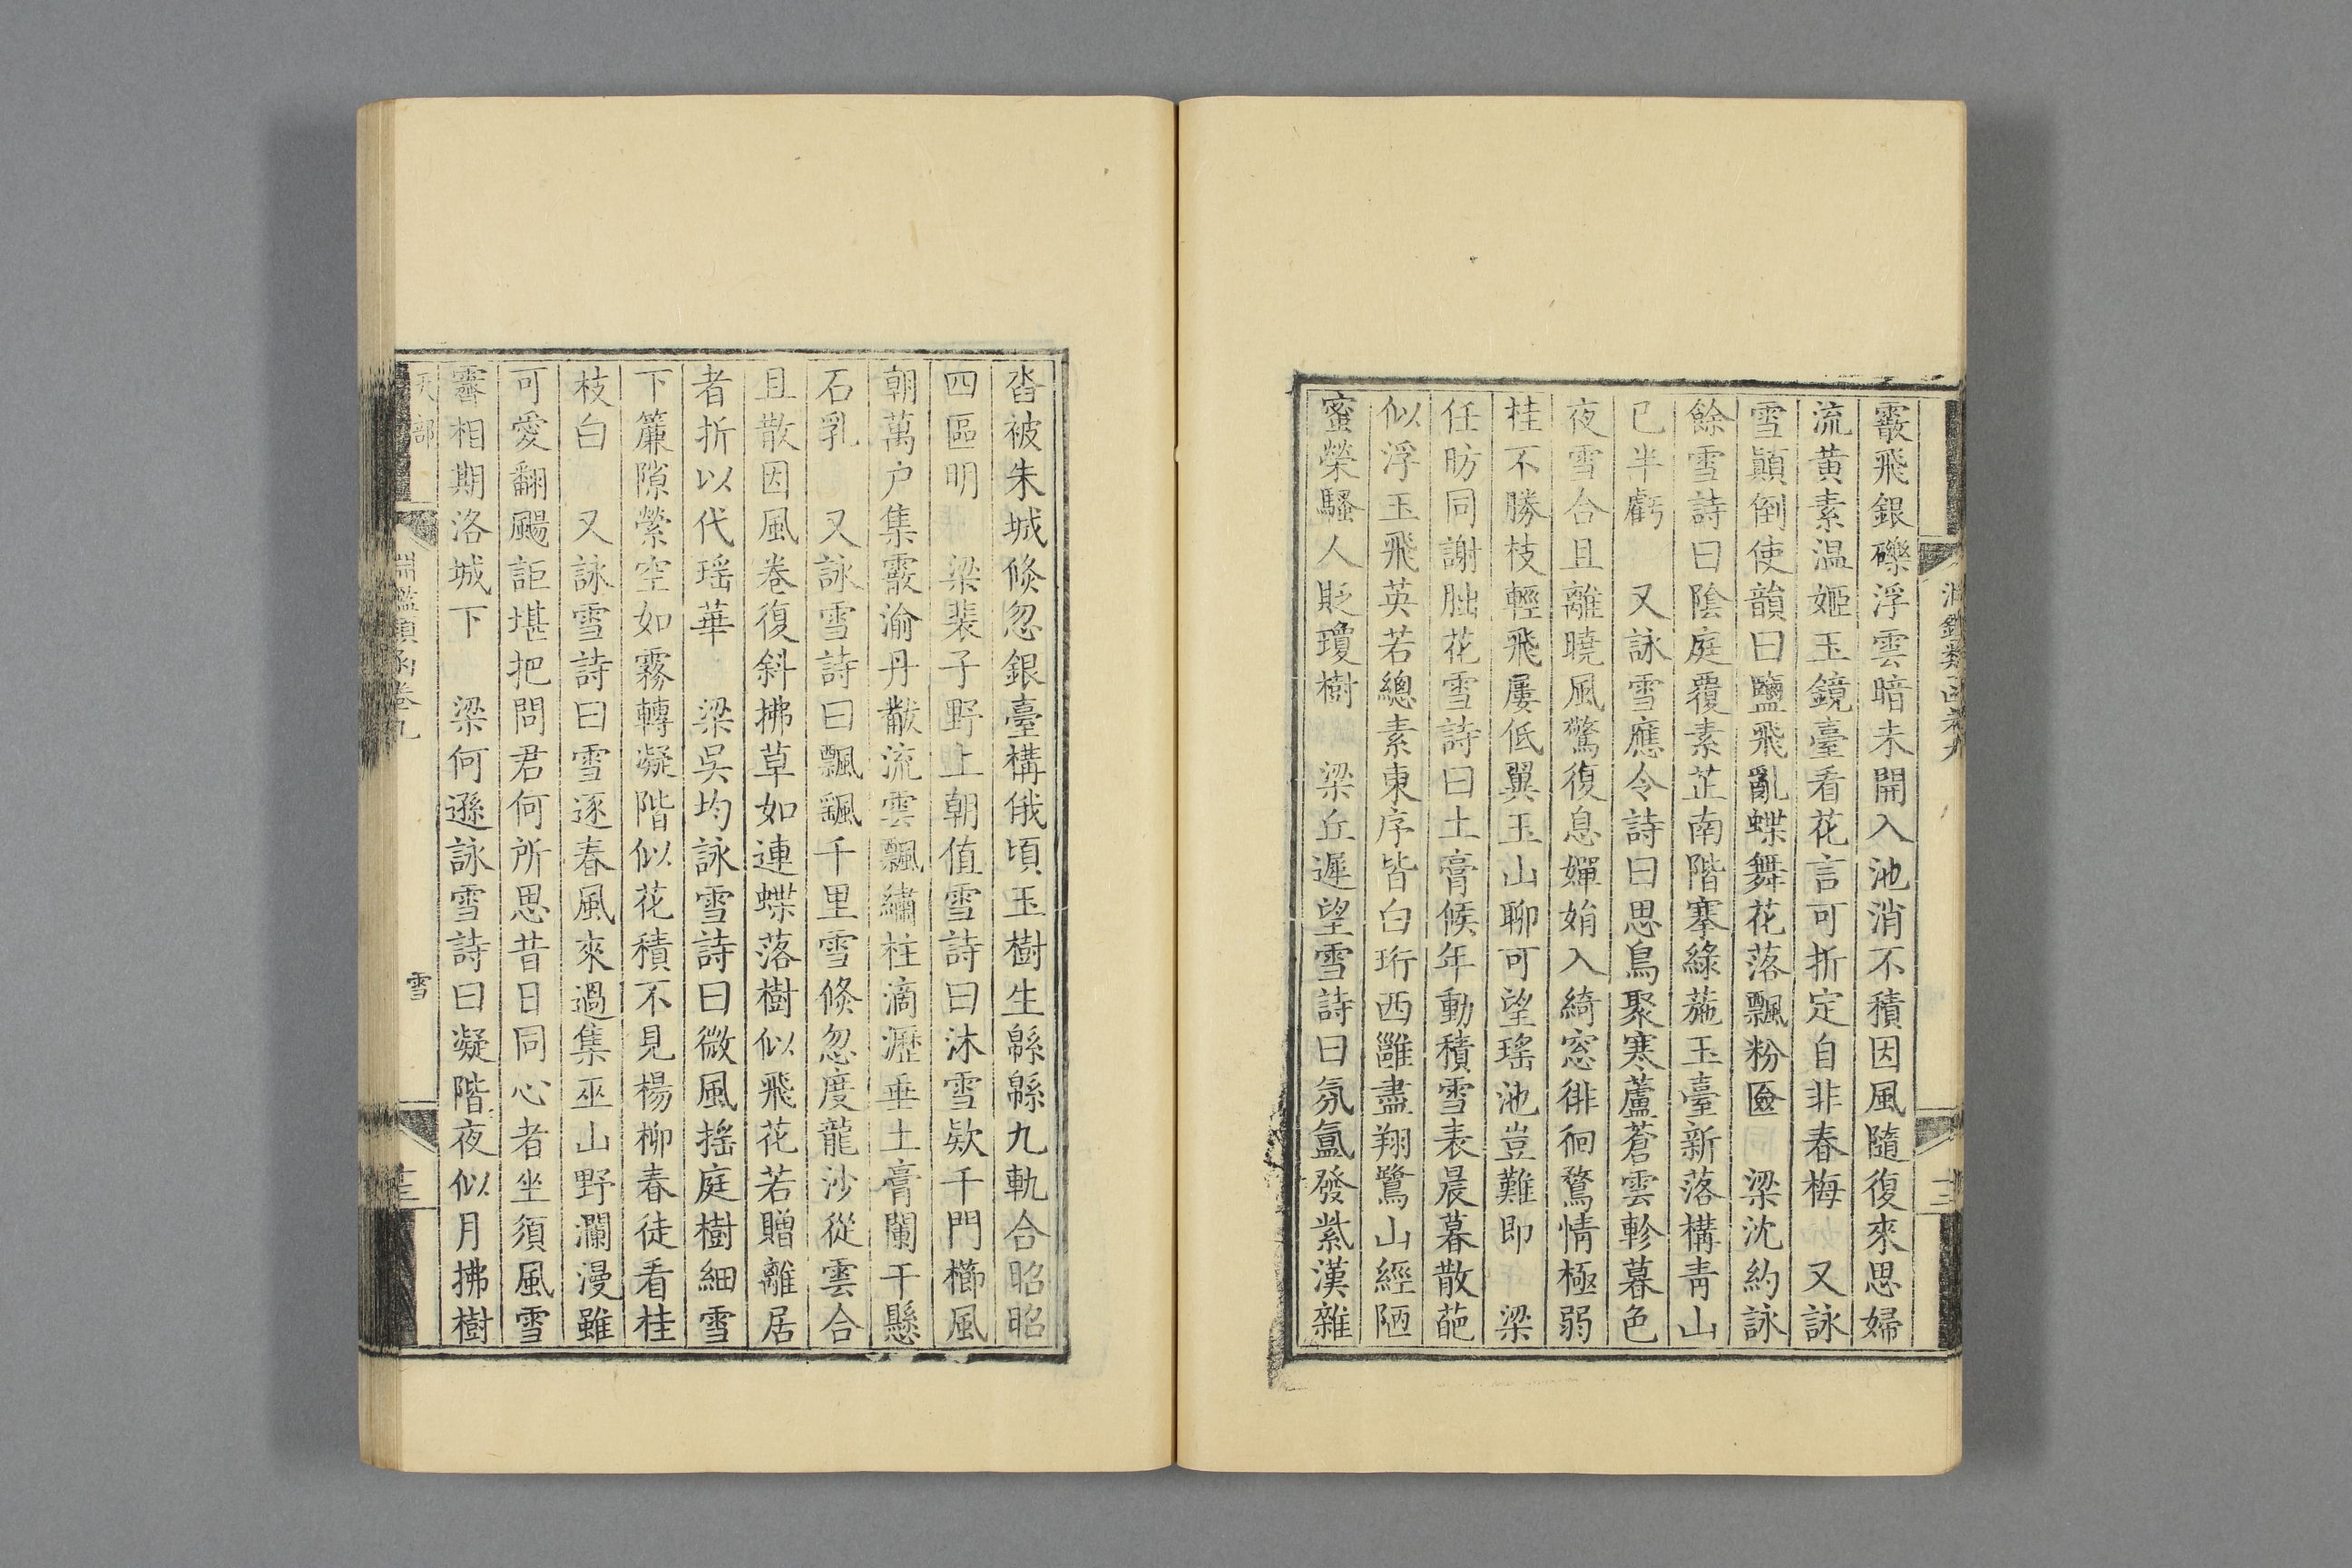 霰飛銀礫浮雲暗未開入池消不積因風隨復來思婦
流黄素温姬玉鏡臺看花言可折定自非春梅　又詠
雪顛倒使韻曰鹽飛亂蝶舞花落飄粉匳　梁沈約詠
餘雪詩曰陰庭覆素芷南階褰綠葹玉臺新落構青山
已半虧　又詠雪應令詩曰思鳥聚寒蘆蒼雲軫暮色
夜雪合且離曉風驚復息嬋娟入綺窓徘徊鶩情極弱
桂不勝枝輕飛屢低翼玉山聊可望瑤池豈難即　梁
任昉同謝朏花雪詩曰土膏候年動積雪表晨暮散葩
似浮玉飛英若總素東序皆白珩西雝盡翔鷺山經陋
蜜榮騷人貶瓊樹　梁丘遲望雪詩曰氛氳發紫漢雜
沓被朱城倐忽銀臺構俄頃玉樹生緜緜九軌合昭昭
四區明　梁裴子野上朝值雪詩曰沐雪款千門櫛風
朝萬户集霰渝丹黻流雲飄繡柱滴瀝垂土膏闌干懸
石乳　又詠雪詩曰飄颻千里雪倐忽度龍沙從雲合
且散因風卷復斜拂草如連蝶落樹似飛花若贈離居
者折以代瑶華　梁吳均詠雪詩曰微風摇庭樹細雪
下簾隙縈空如霧轉凝階似花積不見楊柳春徒看桂
枝白　又詠雪詩曰雪逐春風來過集巫山野瀾漫雖
可愛翻颺詎堪把問君何所思昔日同心者坐須風雪
霽相期洛城下　梁何遜詠雪詩曰凝階夜似月拂樹
天部
淵鑑類函卷九
雪